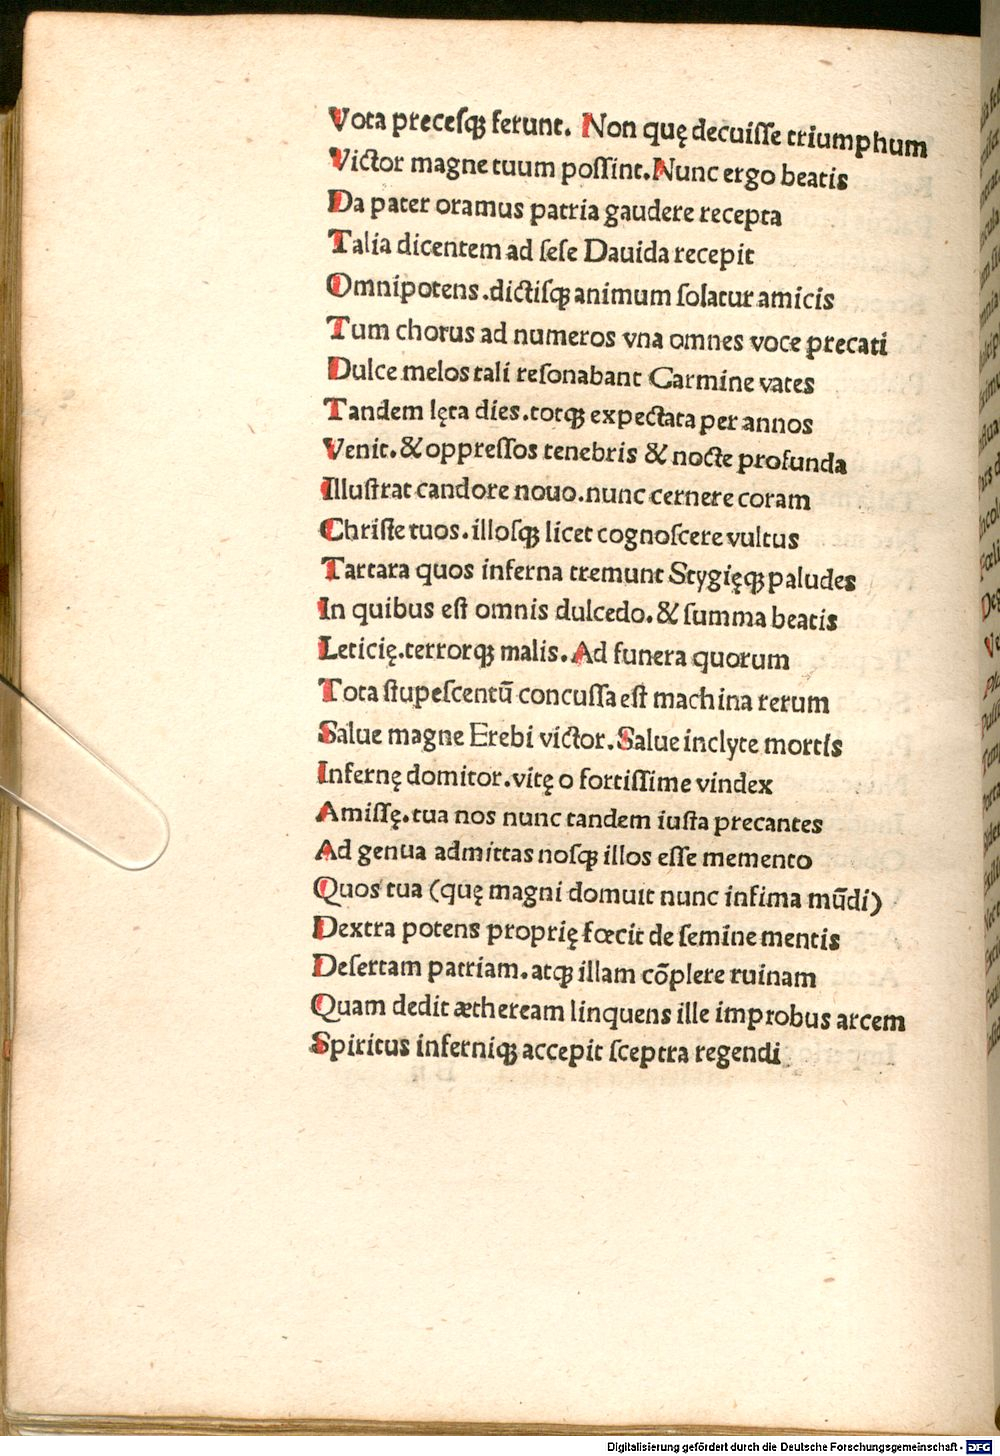 Vota precesqꝫ ferunt. Non quę decuiſſe triumphum
Victor magne tuum poſſint. Nunc ergo beatis
Da pater oramus patria gaudere recepta
Talia dicentem ad ſeſe Dauida recepit
Omnipotens. dictiſqꝫ animum ſolatur amicis
Tum chorus ad numeros vna omnes voce precati
Dulce melos tali reſonabant Carmine vates
Tandem lęta dies. totqꝫ expectata per annos
Venit. & oppreſſos tenebris & nocte profunda
Illuſtrat candore nouo. nunc cernere coram
Chriſte tuos. illoſqꝫ licet cognoſcere vultus
Tartara quos inferna tremunt Stygięqꝫ paludes
In quibus eſt omnis dulcedo. & ſumma beatis
Leticię. terrorqꝫ malis. Ad funera quorum
Tota ſtupeſcentū concuſſa eſt machina rerum
Salue magne Erebi victor. Salue inclyte mortis
Infernę domitor. vitę o fortiſſime vindex
Amiſſę. tua nos nunc tandem iuſta precantes
Ad genua admittas noſqꝫ illos eſſe memento
Quos tua (quę magni domuit nunc infima mūdi)
Dextra potens proprię fœcit de ſemine mentis
Deſertam patriam. atqꝫ illam cōplere ruinam
Quam dedit ætheream linquens ille improbus arcem
Spiritus inferniqꝫ accepit ſceptra regendi
Digitalisierung gefördert durch die Deutsche Forschungsgemeinschaft - DFG